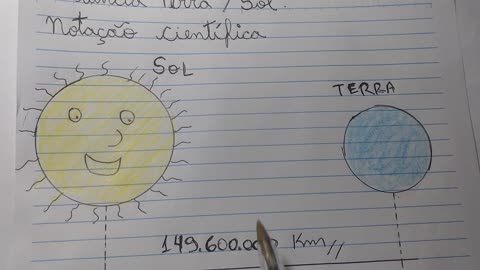 Terra / Sol.
Notação científica
SOL
TERRA
149.600.000 Km//